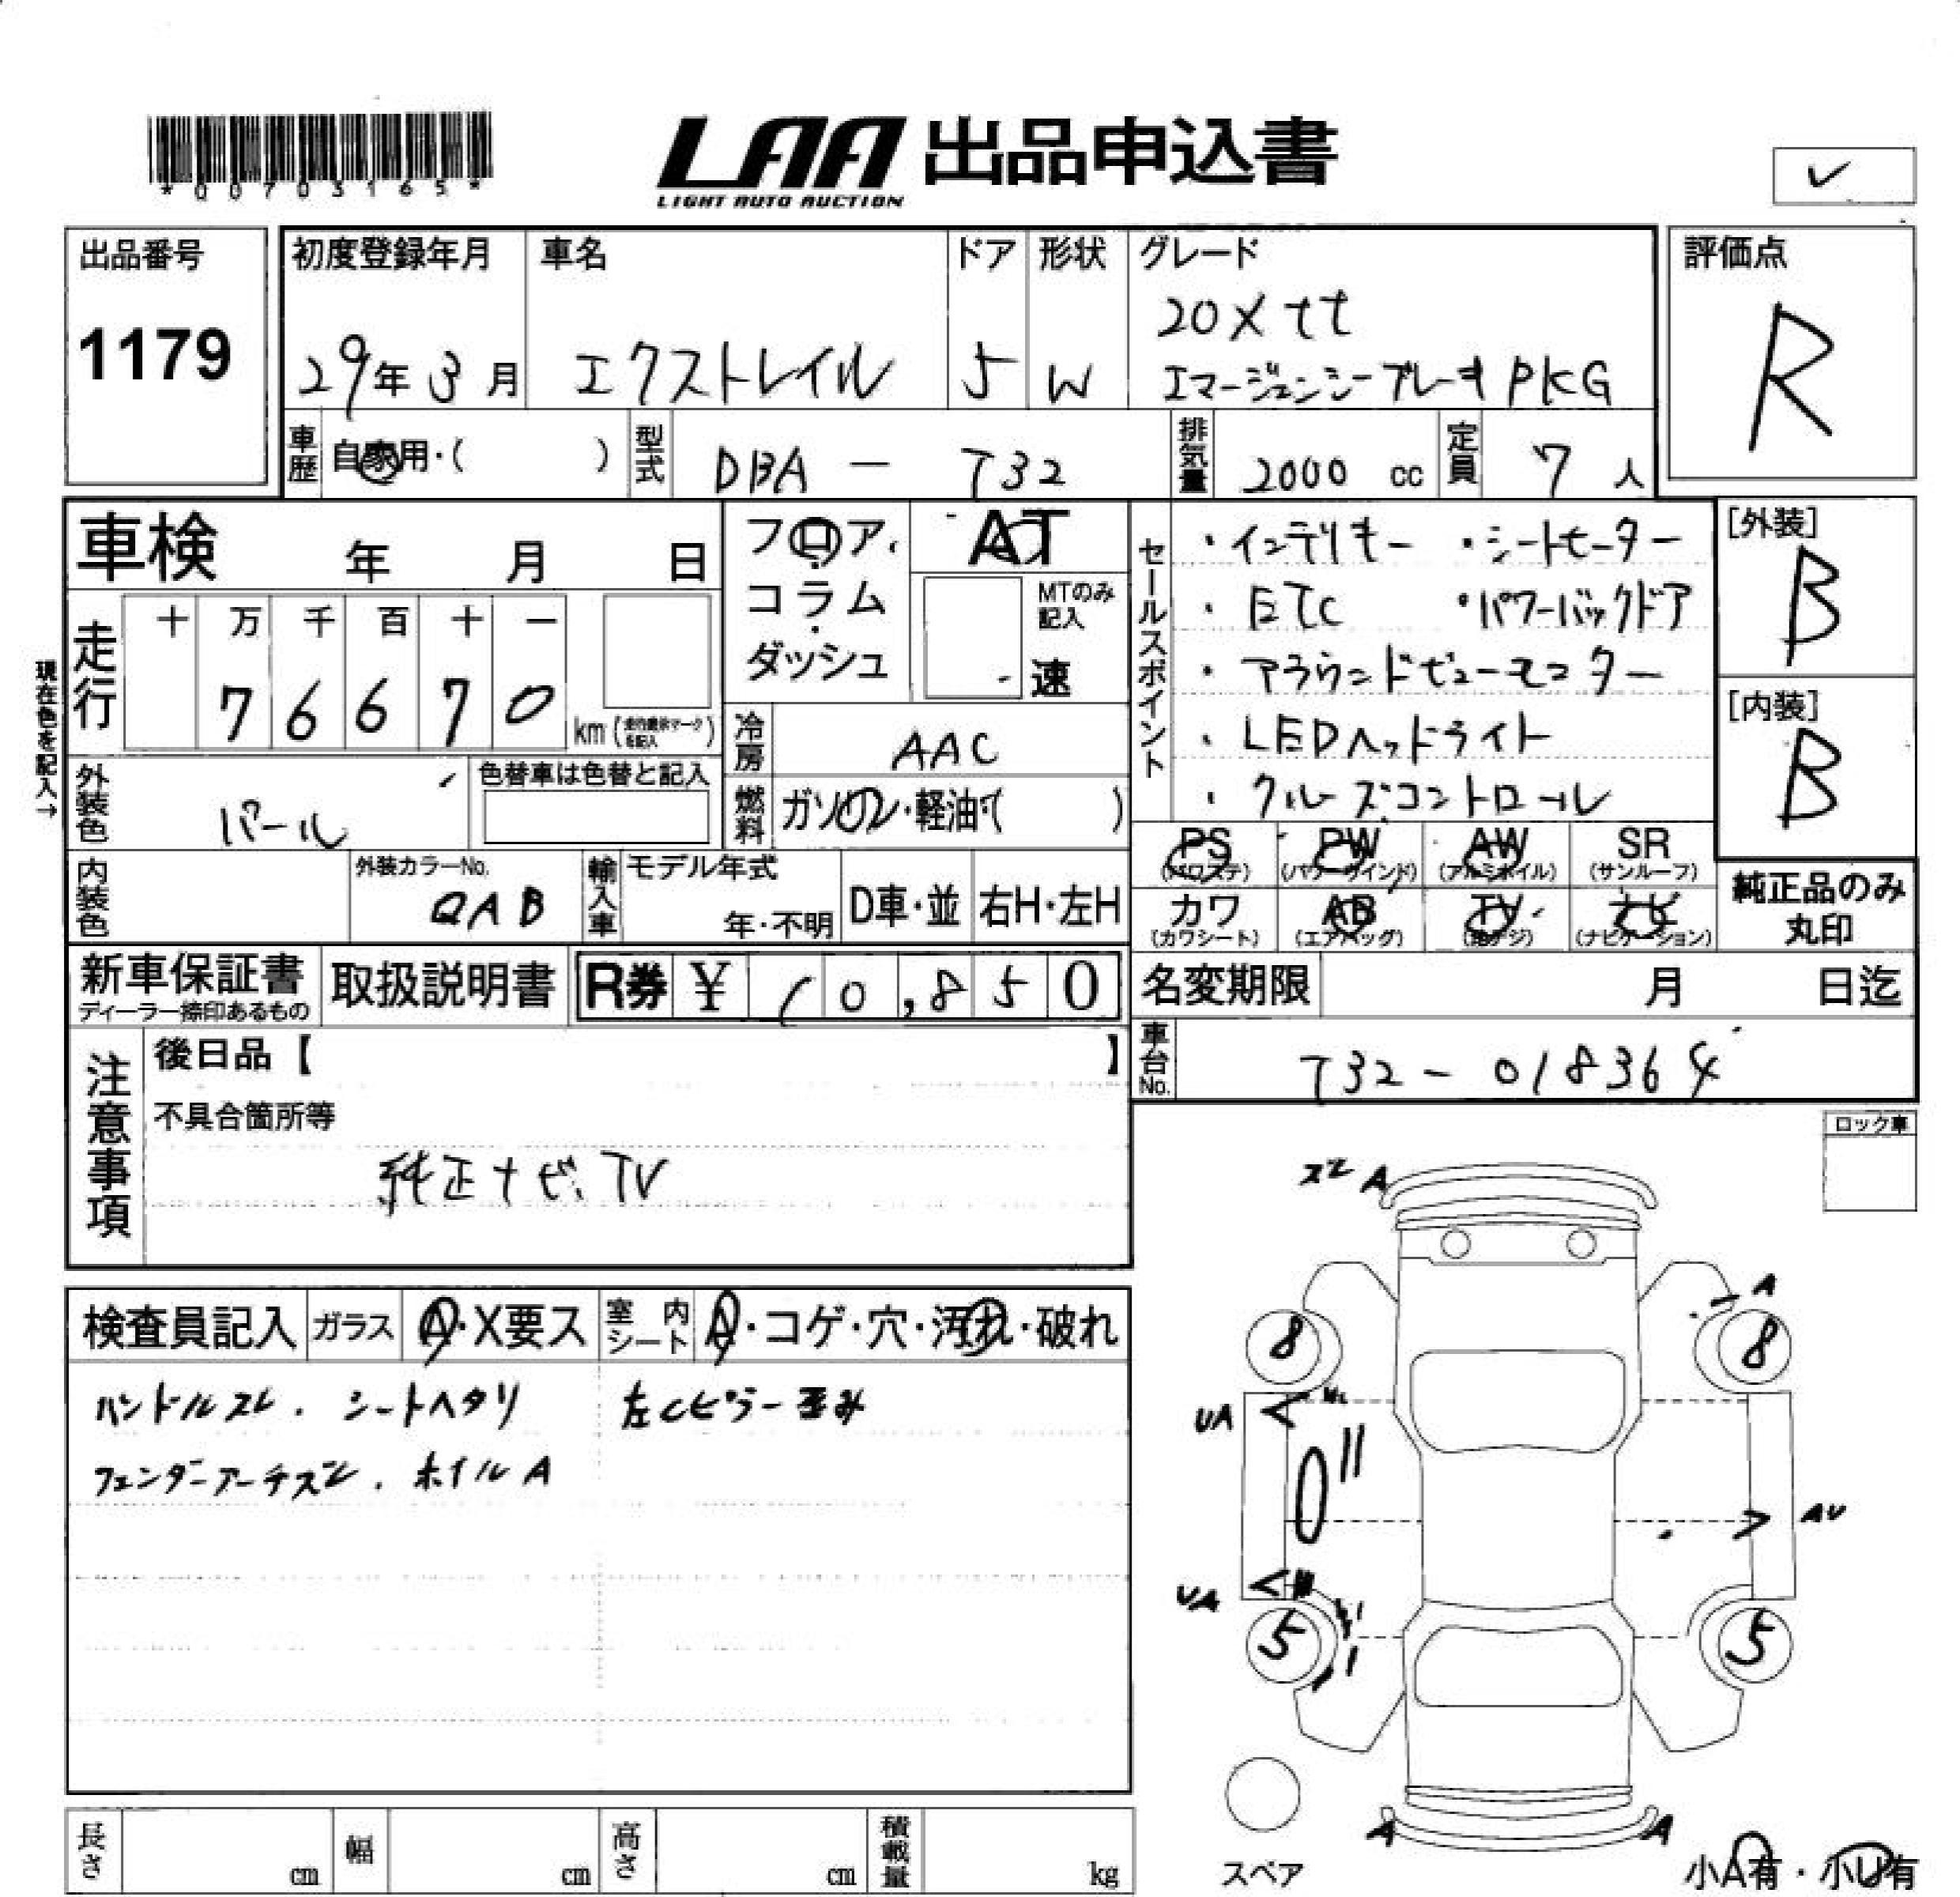 *00703165*
LAA 出品申込書
LIGHT AUTO AUCTION
出品番号
1179
初度登録年月
29年3月
車名
エクストレイル
ドア
5
形状
W
グレード
20Xtt
エマージェンシーブレーキPKG
評価点
R
車歴
自家用・( )
型式
DBA - T32
排気量
2000 cc
定員
7人
車検 年 月 日
現在色を記入→
走行
十 万 千 百 十 一
7 6 6 7 0
km
フロア・
コラム・
ダッシュ
AT
MTのみ記入
速
冷房
AAC
燃料
ガソリン・軽油・( )
セールスポイント
・インテリキー ・シートモーター
・ETC ・パワーバックドア
・アラウンドビューモニター
・LEDヘッドライト
・クルーズコントロール
[外装]
B
[内装]
B
外装色
パール
色替車は色替と記入
内装色
外装カラーNo.
QAB
輸入車
モデル年式
年・不明
D車・並
右H・左H
PS
(パワステ)
PW
(パワーウインド)
AW
(アルミホイル)
SR
(サンルーフ)
カワ
(カワシート)
AB
(エアバッグ)
TV
(地デジ)
ナビ
(ナビゲーション)
純正品のみ
丸印
新車保証書
ディーラー捺印あるもの
取扱説明書
R券 ¥10,850
名変期限 月 日迄
車台No.
T32-018364
注意事項
後日品【 】
不具合箇所等
純正ナビ、TV
ロック車
検査員記入
ガラス
A・X要ス
室内シート
A・コゲ・穴・汚れ・破れ
ハンドルスレ. シートヘタリ
左Cピラー歪み
フェンダーアーチズレ. ホイルA
ズレ A
A
8
8
UA
AU
UA
5
5
A
A
スペア
小A有・小U有
長さ cm
幅 cm
高さ cm
積載量 kg